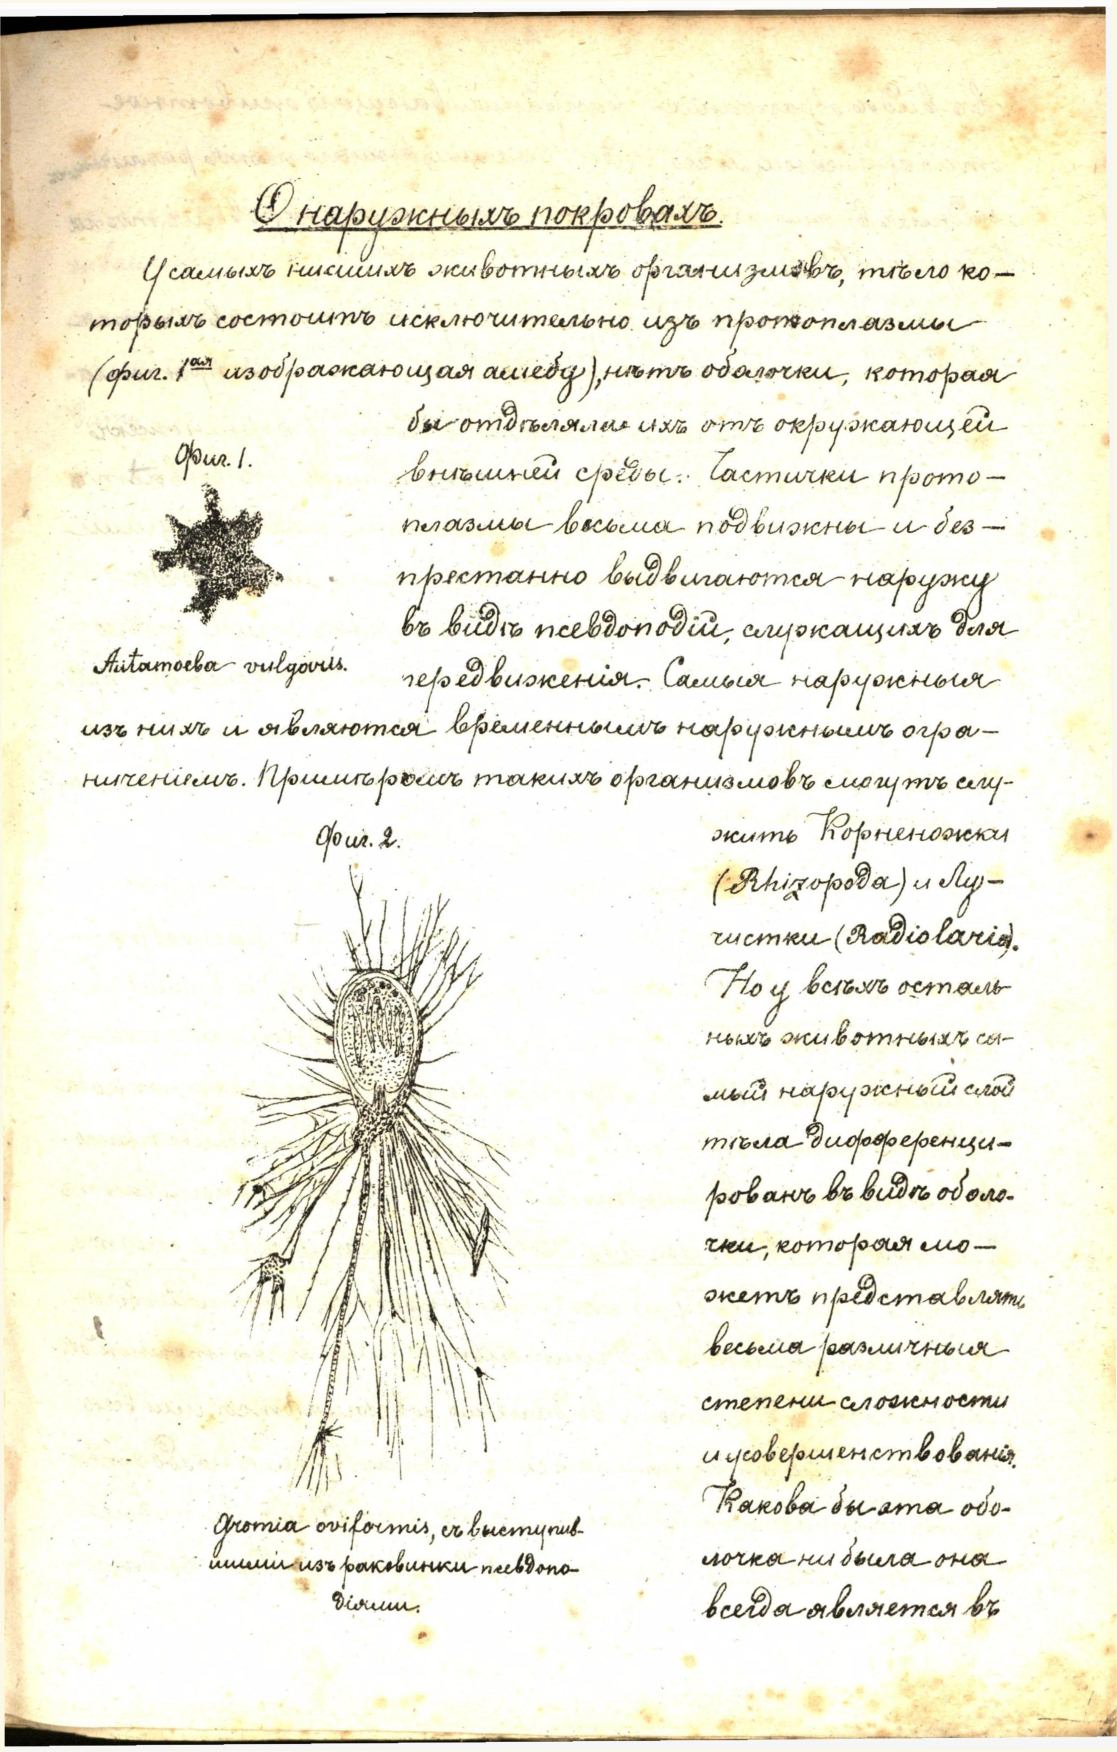 О наружныхъ покровахъ.
У самыхъ низшихъ животныхъ организмовъ, тѣло ко-
торыхъ состоитъ исключительно изъ протоплазмы
(фиг. 1ая изображающая амебу), нѣтъ оболочки, которая
бы отдѣляла ихъ отъ окружающей
внѣшней среды. Частички прото-
плазмы весьма подвижны и без-
престанно выдвигаются наружу
въ видѣ псевдоподій, служащихъ для
передвиженія. Самыя наружныя
Фиг. 1.
Autamoeba vulgaris.
изъ нихъ и являются временнымъ наружнымъ огра-
ниченіемъ. Примѣромъ такихъ организмовъ могутъ слу-
жить Корненожки
(Rhizopoda) и Лу-
чистки (Radiolaria).
Но у всѣхъ осталь
ныхъ животныхъ са-
мый наружный слой
тѣла дифференци-
рованъ въ видѣ оболо-
чки, которая мо-
жетъ представлять
весьма различныя
степени сложности
и усовершенствованія.
Какова бы эта обо-
лочка ни была она
всегда является въ
Фиг. 2.
Gromia oviformis, съ выступив-
шими изъ раковинки псевдопо-
діями.